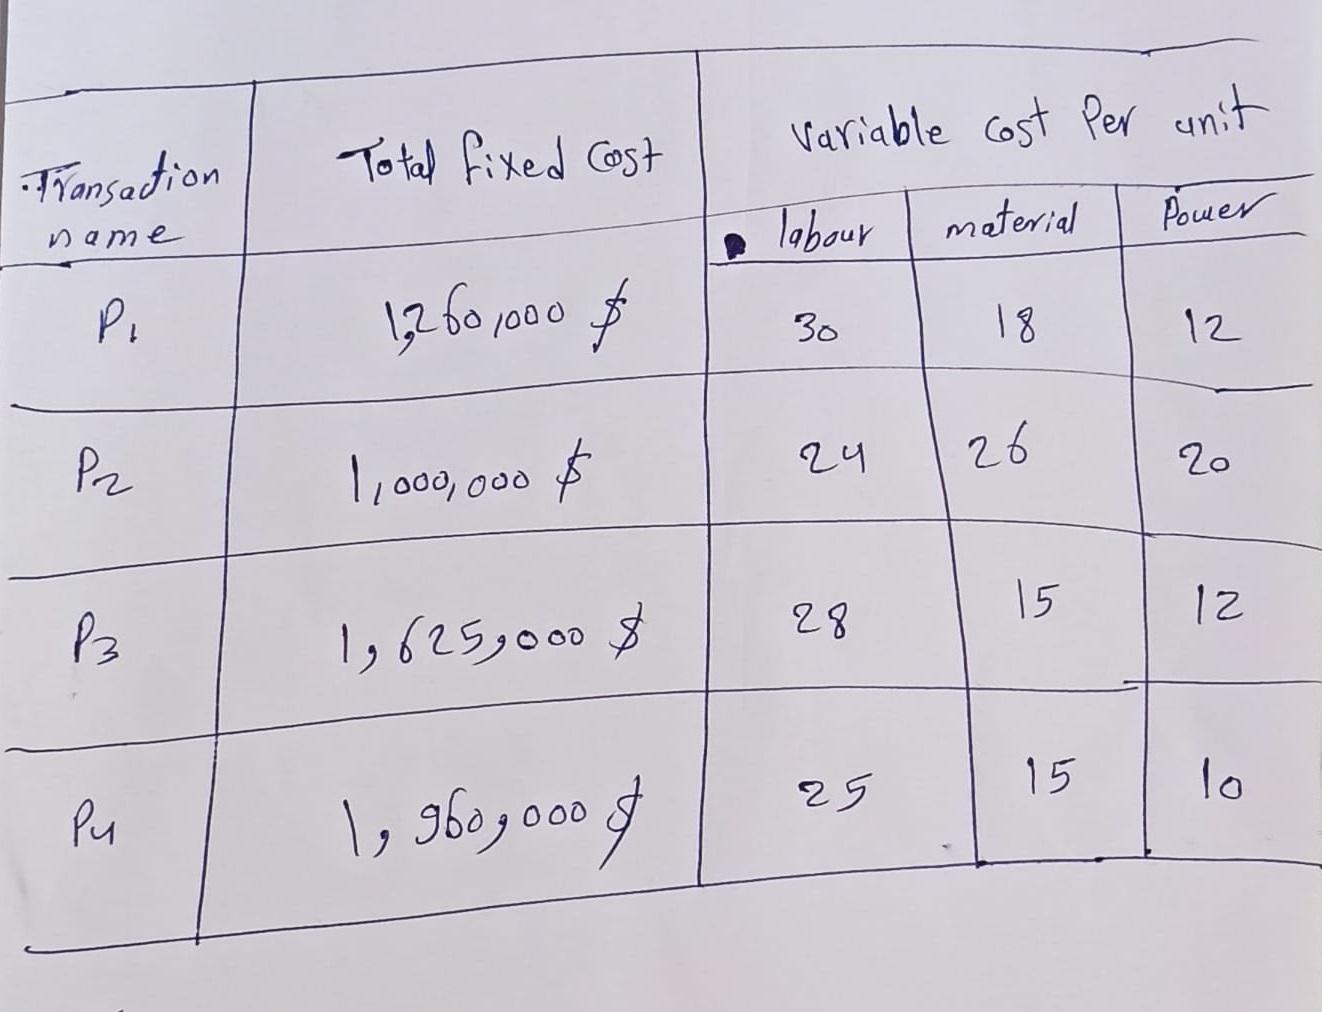 Transaction name Total fixed Cost Variable cost Per unit
labour material Power
P1 1,260,000 $ 30 18 12
P2 1,000,000 $ 24 26 20
P3 1,625,000 $ 28 15 12
P4 1,960,000 $ 25 15 10